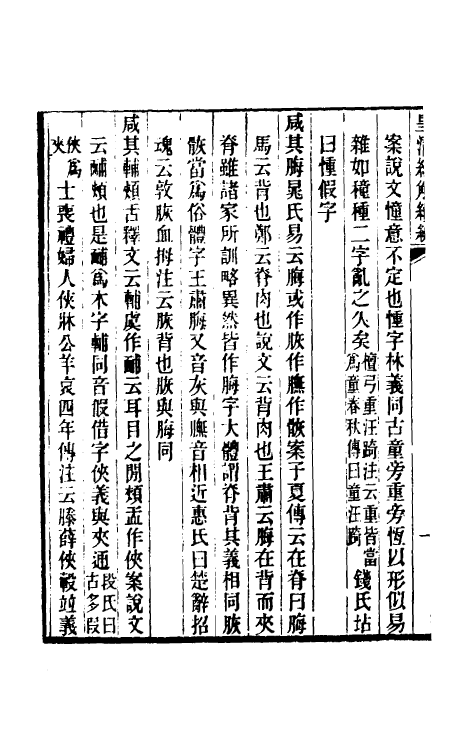 皇清經解續編
案說文憧意不定也㣫字林義同古童旁重旁恆以形似易
雜如穜種二字亂之久矣檀弓重汪踦注云重皆當爲童春秋傳曰童汪踦錢氏坫
曰㣫假字
咸其脢晁氏易云脢或作脄作膴作骸案子夏傳云在脊曰脢
馬云背也鄭云脊肉也說文云背肉也王肅云脢在背而夾
脊雖諸家所訓略異然皆作脢字大體謂脊背其義相同脄
骸當爲俗體字王肅脢又音灰與膴音相近惠氏曰楚辭招
魂云敦脄血拇注云脄背也脄與脢同
咸其輔頰舌釋文云輔虞作䩉云耳目之閒頰孟作俠案說文
云䩉頰也是䩉爲本字輔同音假借字俠義與夾通段氏曰古多假
俠爲夾士喪禮婦人俠牀公羊哀四年傳注云滕薛俠轂竝義